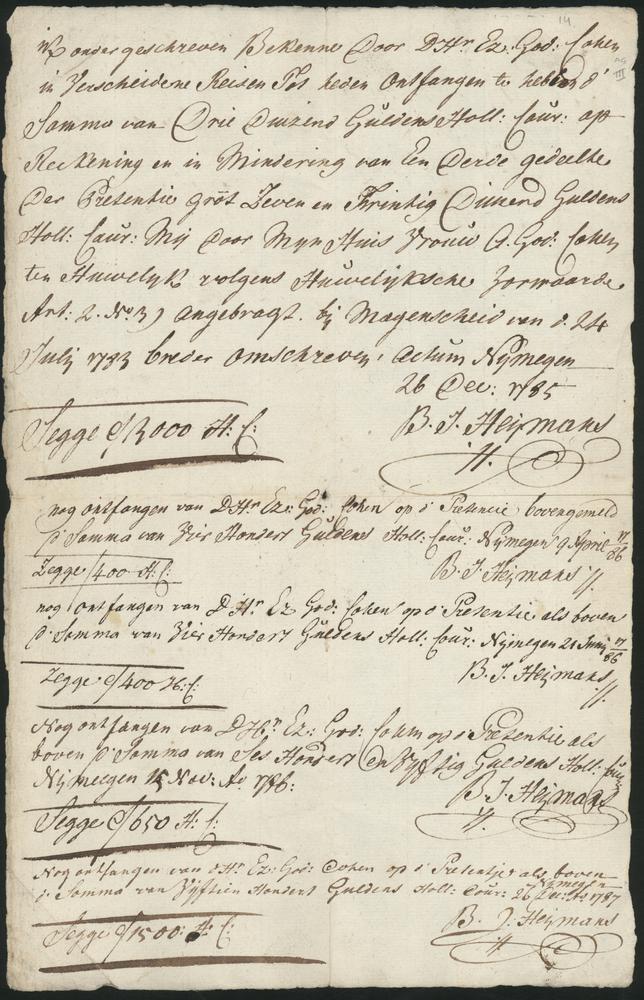 14
ondergeschreven Bekenne Door D Hr Ez: God: Cohen
in Verscheidene Reisen Tot heden Ontfangen te hebben d'
Somma van Drie Duizend Guldens Holl: Cour: op
Reekening en in Mindering van Een Derde gedeelte
Der Pretentie groot Zeven en Thrintig Duizend Guldens
Holl: Cour: Mij Door Mijn Huis Vrouw G. God: Cohen
ten Huwelijk volgens Huwelijksche Vorwaarde
Art: 2. No 3) angebragt. bij Magenscheid van d. 24
July 1783 breder omschreven, Actum Nijmegen
26 Dec: 1785
Segge ƒ 3000 H: C:
B. I. Heijmans
nog ontfangen van D Hr Ez: God: Cohen op d' Pretencie bovengemeld
d' Somma van Vier Hondert Guldens Holl: Cour: Nijmegen 9 April 17/86
Zegge ƒ 400 H: C:
B. I. Heijmans
nog ontfangen van D Hr Ez God: Cohen op d' Pretentie als boven
d' Somma van Vier Hondert Guldens Holl: Cour: Nijmegen 21 Junij 17/86
Zegge ƒ 400 H: C:
B. I. Heijmans
Nog ontfangen van D Hr Ez: God: Cohen op d' Pretentie als
boven d' Somma van Ses Hondert En Vyftig Guldens Holl: Cour:
Nijmegen 15 Nov: Ao 1786:
B. I. Heijmans
Segge ƒ 650 H: C:
Nog ontfangen van d Hr Ez: God: Cohen op d' Pretentje als boven
d' Somma van Vijftien Hondert Guldens Holl: Cour: Nijmegen 26 Dec: Ao 1787
Segge ƒ 1500: H: C:
B. I. Heijmans